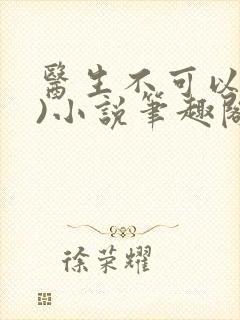 醫生不可以
)小說筆趣閣
徐荣耀